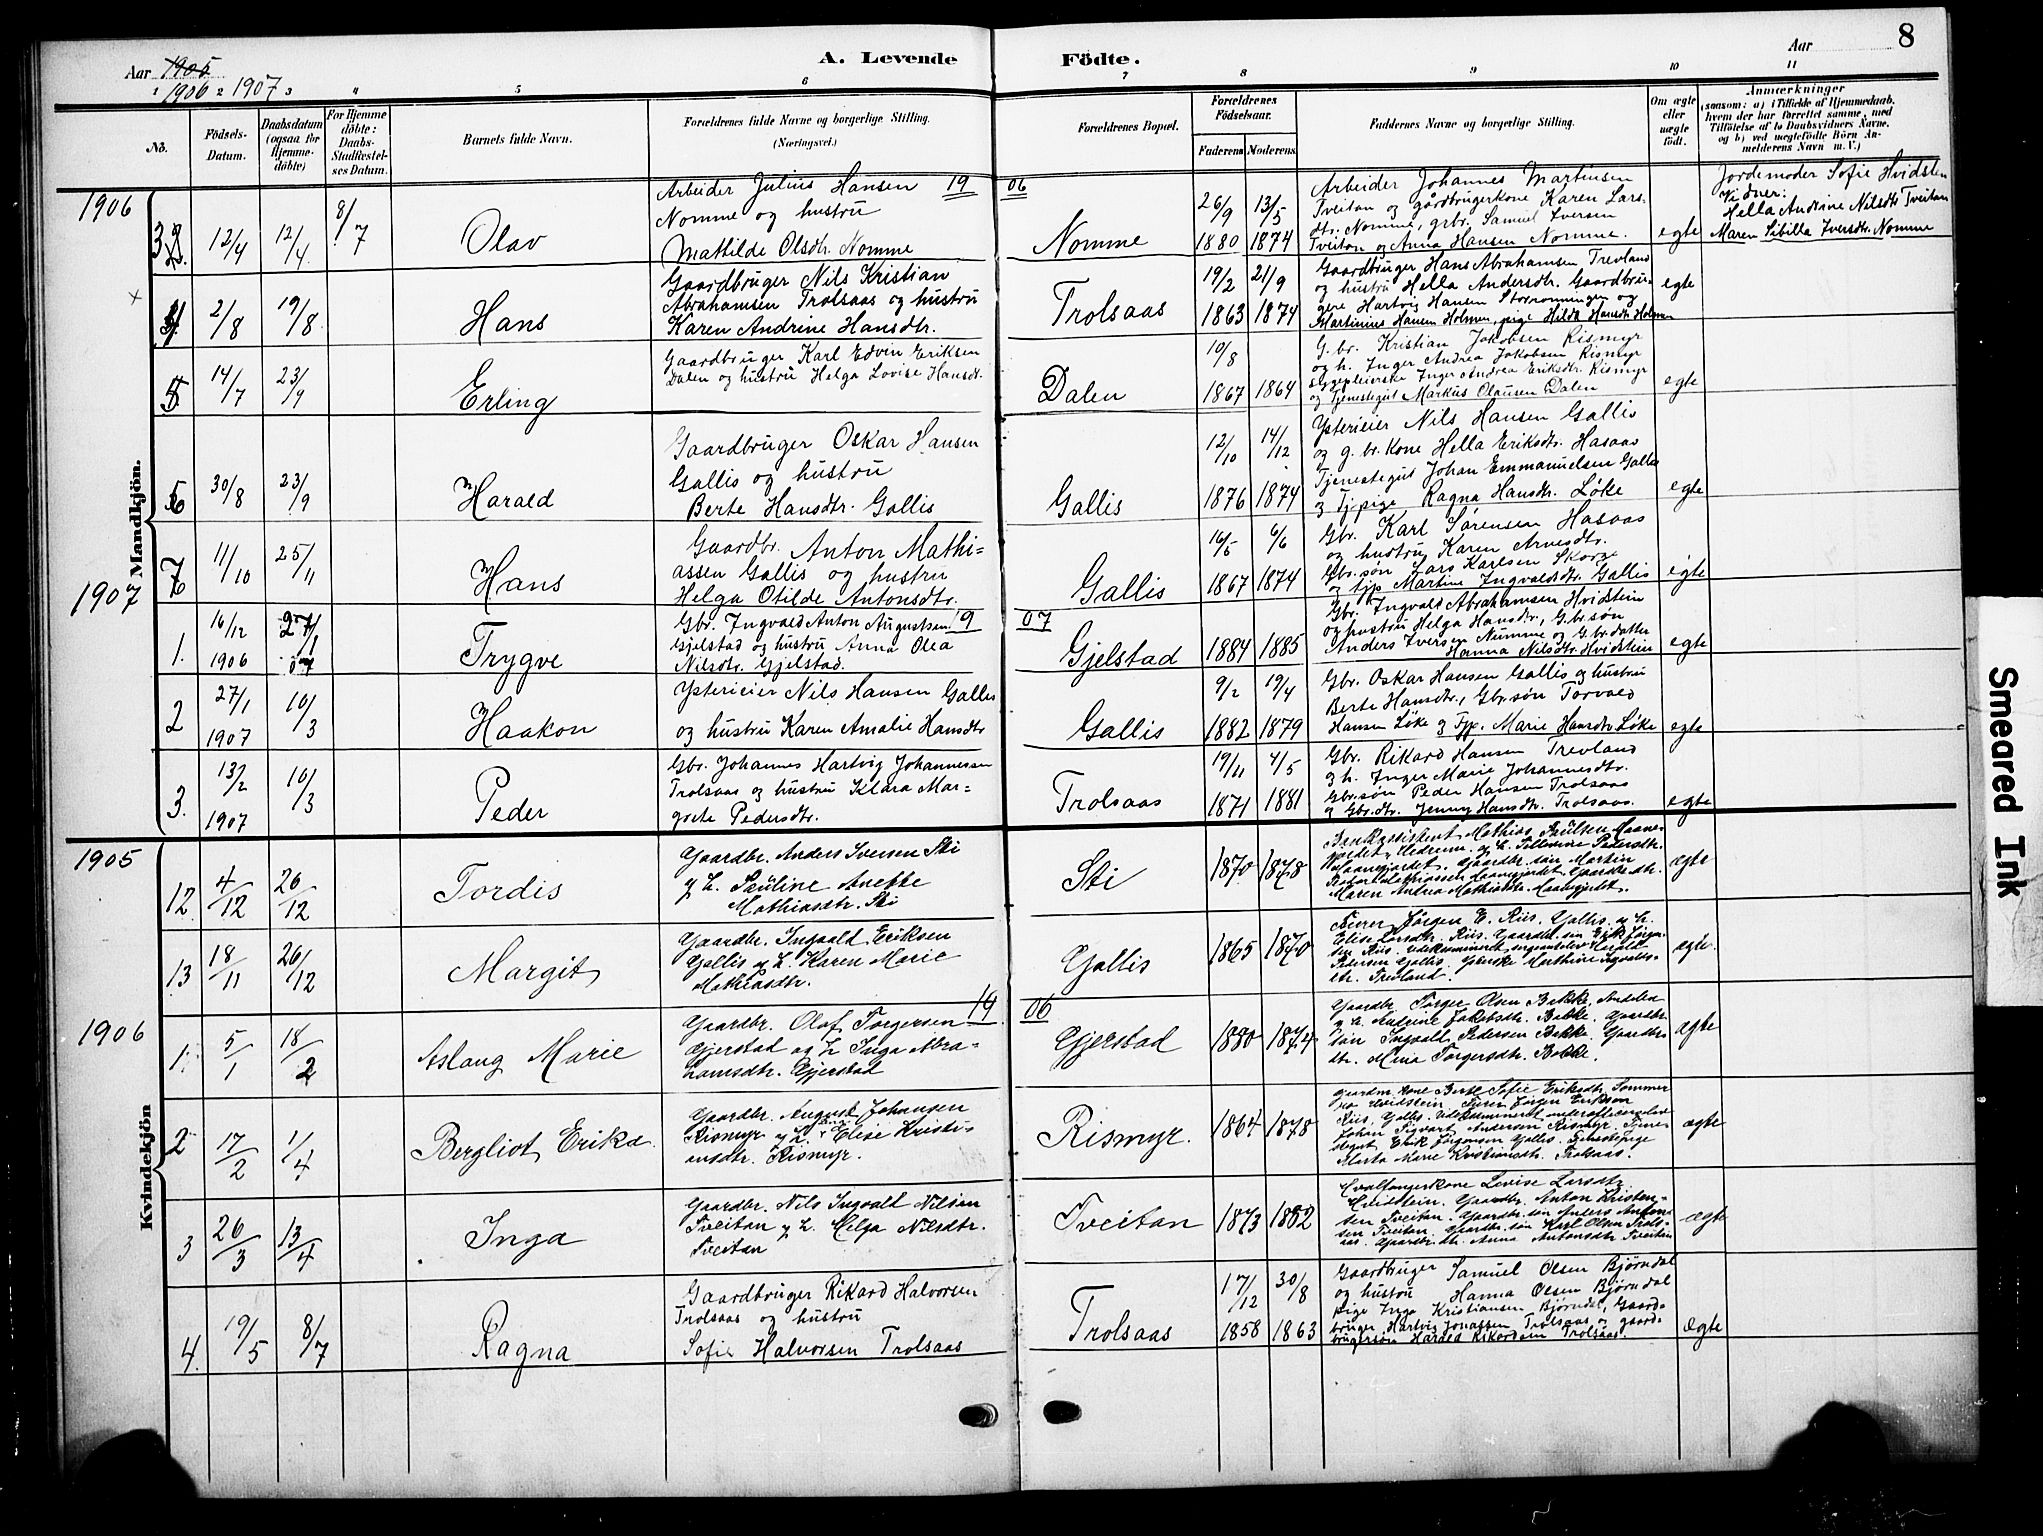 8
Aar 1905
1906 1907
A. Levende Födte.
Aar
1 2 3 4 5 6 7 8 9 10 11
No.
Födsels-
Datum.
Daabsdatum
(ogsaa for
Hjemme-
döbte)
For Hjemme
döbte:
Daabs-
Stadfæstel-
ses Datum.
Barnets fulde Navn.
Forældrenes fulde Navne og borgerlige Stilling.
(Næringsvei.)
Forældrenes Bopæl.
Forældrenes
Födselsaar.
Faderens Moderens
Faddernes Navne og borgerlige Stilling.
Om ægte
eller
uægte
født.
Anmærkninger
(saasom: a) i Tilfælde af Hjemmedaab.
hvem der har forrettet samme, med
Tilföielse af to Daabsvidners Navne.
og b) ved uægtefödte Börn An-
melderens Navn m. V.)
Mandkjön.
1906
3
12/4
12/4
8/7
Olav
Arbeider Julius Hansen
Nomme og hustru
Mathilde Olsdtr. Nomme
19 06
Nomme
26/9 1880
13/5 1874
Arbeider Johannes Martinsen
Tveitan og gårdbrugerkone Karen Lars-
dtr. Nomme, grbr. Samuel Iversen
Tveitan og Anna Hansen Nomme.
egte
Jordemoder Sofie Hvidsten
Vidner:
Hella Andrine Nilsdtr Tveitan
Maren Sibilla Iversdtr. Nomme
4
2/8
19/8
Hans
Gaardbruger Nils Kristian
Abrahamsen Trolsaas og hustru
Karen Andrine Hansdtr.
Trolsaas
19/2 1863
21/9 1874
Gaardbruger Hans Abrahamsen Trevland
og hustru Hella Andersdtr. Gaardbru-
gere Hartvig Hansen Storemoningen og
Martinius Hansen Holmen, pige Hilda Hansdtr Holmen
egte
5
14/7
23/9
Erling
Gaardbruger Karl Edvin Eriksen
Dalen og hustru Helga Lovise Hansdt.
Dalen
10/8 1867
1864
G. br. Kristian Jakobsen Rismyr
og h. Inger Andrea Jakobsen Rismyr
sygepleierske Inger Andrea Eriksdtr. Rismyr
og Tjenestegut Markus Olausen Dalen
egte
6
30/8
23/9
Harald
Gaardbruger Oskar Hansen
Gallis og hustru
Berte Hansdtr. Gallis
Gallis
12/10 1876
14/12 1874
Ysterieier Nils Hansen Gallis
og g. br. kone Hella Eriksdtr. Hasaas
Tjenestegut Johan Emmanuelsen Gallis
og Tj. pige Ragna Hansdtr. Løke
egte
7
11/10
25/11
Hans
Gaardbr. Anton Mathi=
assen Gallis og hustru
Helga Otilde Antonsdtr.
Gallis
16/5 1867
6/6 1874
Gbr. Karl Sørensen Hasaas
og hustru Karen Arnesdtr.
Gbr. søn Lars Karlsen Skorge
og tjp Martine Ingvaldsdtr. Gallis
egte
1907
1.
16/12 1906
27/1 07
Trygve
Gbr. Ingvald Anton Augustsen
Gjelstad og hustru Anna Olea
Nilsdtr. Gjelstad.
19 07
Gjelstad
1884
1885
Gbr. Ingvald Abrahamsen Hvidstein
og hustru Helga Hansdtr., G.br.søn
Anders Iversen Numme og G.br.datter
Hanna Nilsdtr. Hvidstein
egte
2
27/1 1907
10/3
Haakon
Ysterieier Nils Hansen Gallis
og hustru Karen Amalie Hansdtr
Gallis
9/2 1882
19/4 1879
Gbr. Oskar Hansen Gallis og hustru
Berte Hansdtr., Gbr.søn Torvald
Hansen Løke og Tjp. Marie Hansdtr. Løke
egte
3.
13/2 1907
10/3
Peder
Gbr. Johannes Hartvig Johannessen
Trolsaas og hustru Klara Mar=
grete Pedersdtr.
Trolsaas
19/11 1871
4/5 1881
Gbr. Rikard Hansen Trevland
og h. Inger Marie Johannesdtr.
Gbr.søn Peder Hansen Trolsaas
og Gbr.dtr. Jenny Hansdtr. Trolsaas.
egte
Kvindekjön
1905
12
4/12
26/12
Tordis
Gaardbr. Anders Iversen Sti
og h. Pauline Anette
Mathiasdtr. Sti
Sti
1870
1878
Mathias Paulsen Maane-
gjordet, Hedrum, og h. Pedersdtr.
Maanegjordet, Gaardbr. søn Martin
Mathiassen Maanegjordet, Gaardbr. dtr.
Maren Andrea Mathiasdtr. Maanegjordet.
ægte
13
18/11
26/12
Margit
Gaardbr. Ingvald Eriksen
Gallis og h. Karen Marie
Mathiasdtr.
Gallis
1865
1870
Furer Jørgen E. Riis, Gallis, og h.
Elise Larsdtr. Riis. Gaardbr. søn Erik Jörgen-
sen Riis.
Pedersen Gallis. Marthine Ingvalds-
dtr. Trevland.
ægte.
1906
1.
5/1
18/2
Aslaug Marie
Gaardbr. Olaf Torgersen
Gjerstad og h. Inga Abra-
hamsdtr. Gjerstad
19 06
Gjerstad
1880
1874
Gaardbr Torger Olsen Bakke, Andebu
og h. Andrine Jakobsdtr. Bakke. Gaardbr
søn Ingvald Pedersen Bakke. Gaardbr.
dtr. Mina Torgersdtr. Bakke.
ægte
2
17/2
1/4
Bergliot Erika.
Gaardbr. August Johansen
Rismyr og h. Elise Kristi-
ansdtr. Rismyr.
Rismyr.
1864
1878
Gaardm. kone Berte Sofie Eriksdtr. Sommer
Hvidstein. Furer Jörgen Eriksen
Riis, Gallis. Udeksamineret underofficerselev
Johan Sigvart Andersen Rismyr. Tjene-
stegut Erik Jörgensen Gallis. Tjenestepige
Marta Marie Kristiansdtr. Trolsaas.
ægte
3
26/3
13/4
Inga
Gaardbr. Nils Ingvald Nilsen
Tveitan og h. Helga Nilsdtr.
Tveitan
Tveitan
1873
1882
Hvalfangerkone Lovise Larsdtr
Hvidstein. Gaardbr. Anton Kristen-
sen Tveitan. Gaardbr. søn Anders Anton-
sen Tveitan. Gaardbr. søn Karl Olsen Trols-
aas. Gaardbr. dtr. Anna Antonsdtr Tveitan
ægte
4.
19/5
8/7
Ragna
Gaardbruger Rikard Halvorsen
Trolsaas og hustru
Sofie Halvorsen Trolsaas
Trolsaas
17/12 1858
30/8 1863
Gaardbruger Samuel Olsen Bjørndal
og hustru Hanna Olsen Bjørndal
pige Inga Kristiansen Bjørndal, Gaard-
bruger Hartvig Jonassen Trolsaas og gaard-
brugersøn Harald Rikardsen Trolsaas.
Ægte
Smeared Ink